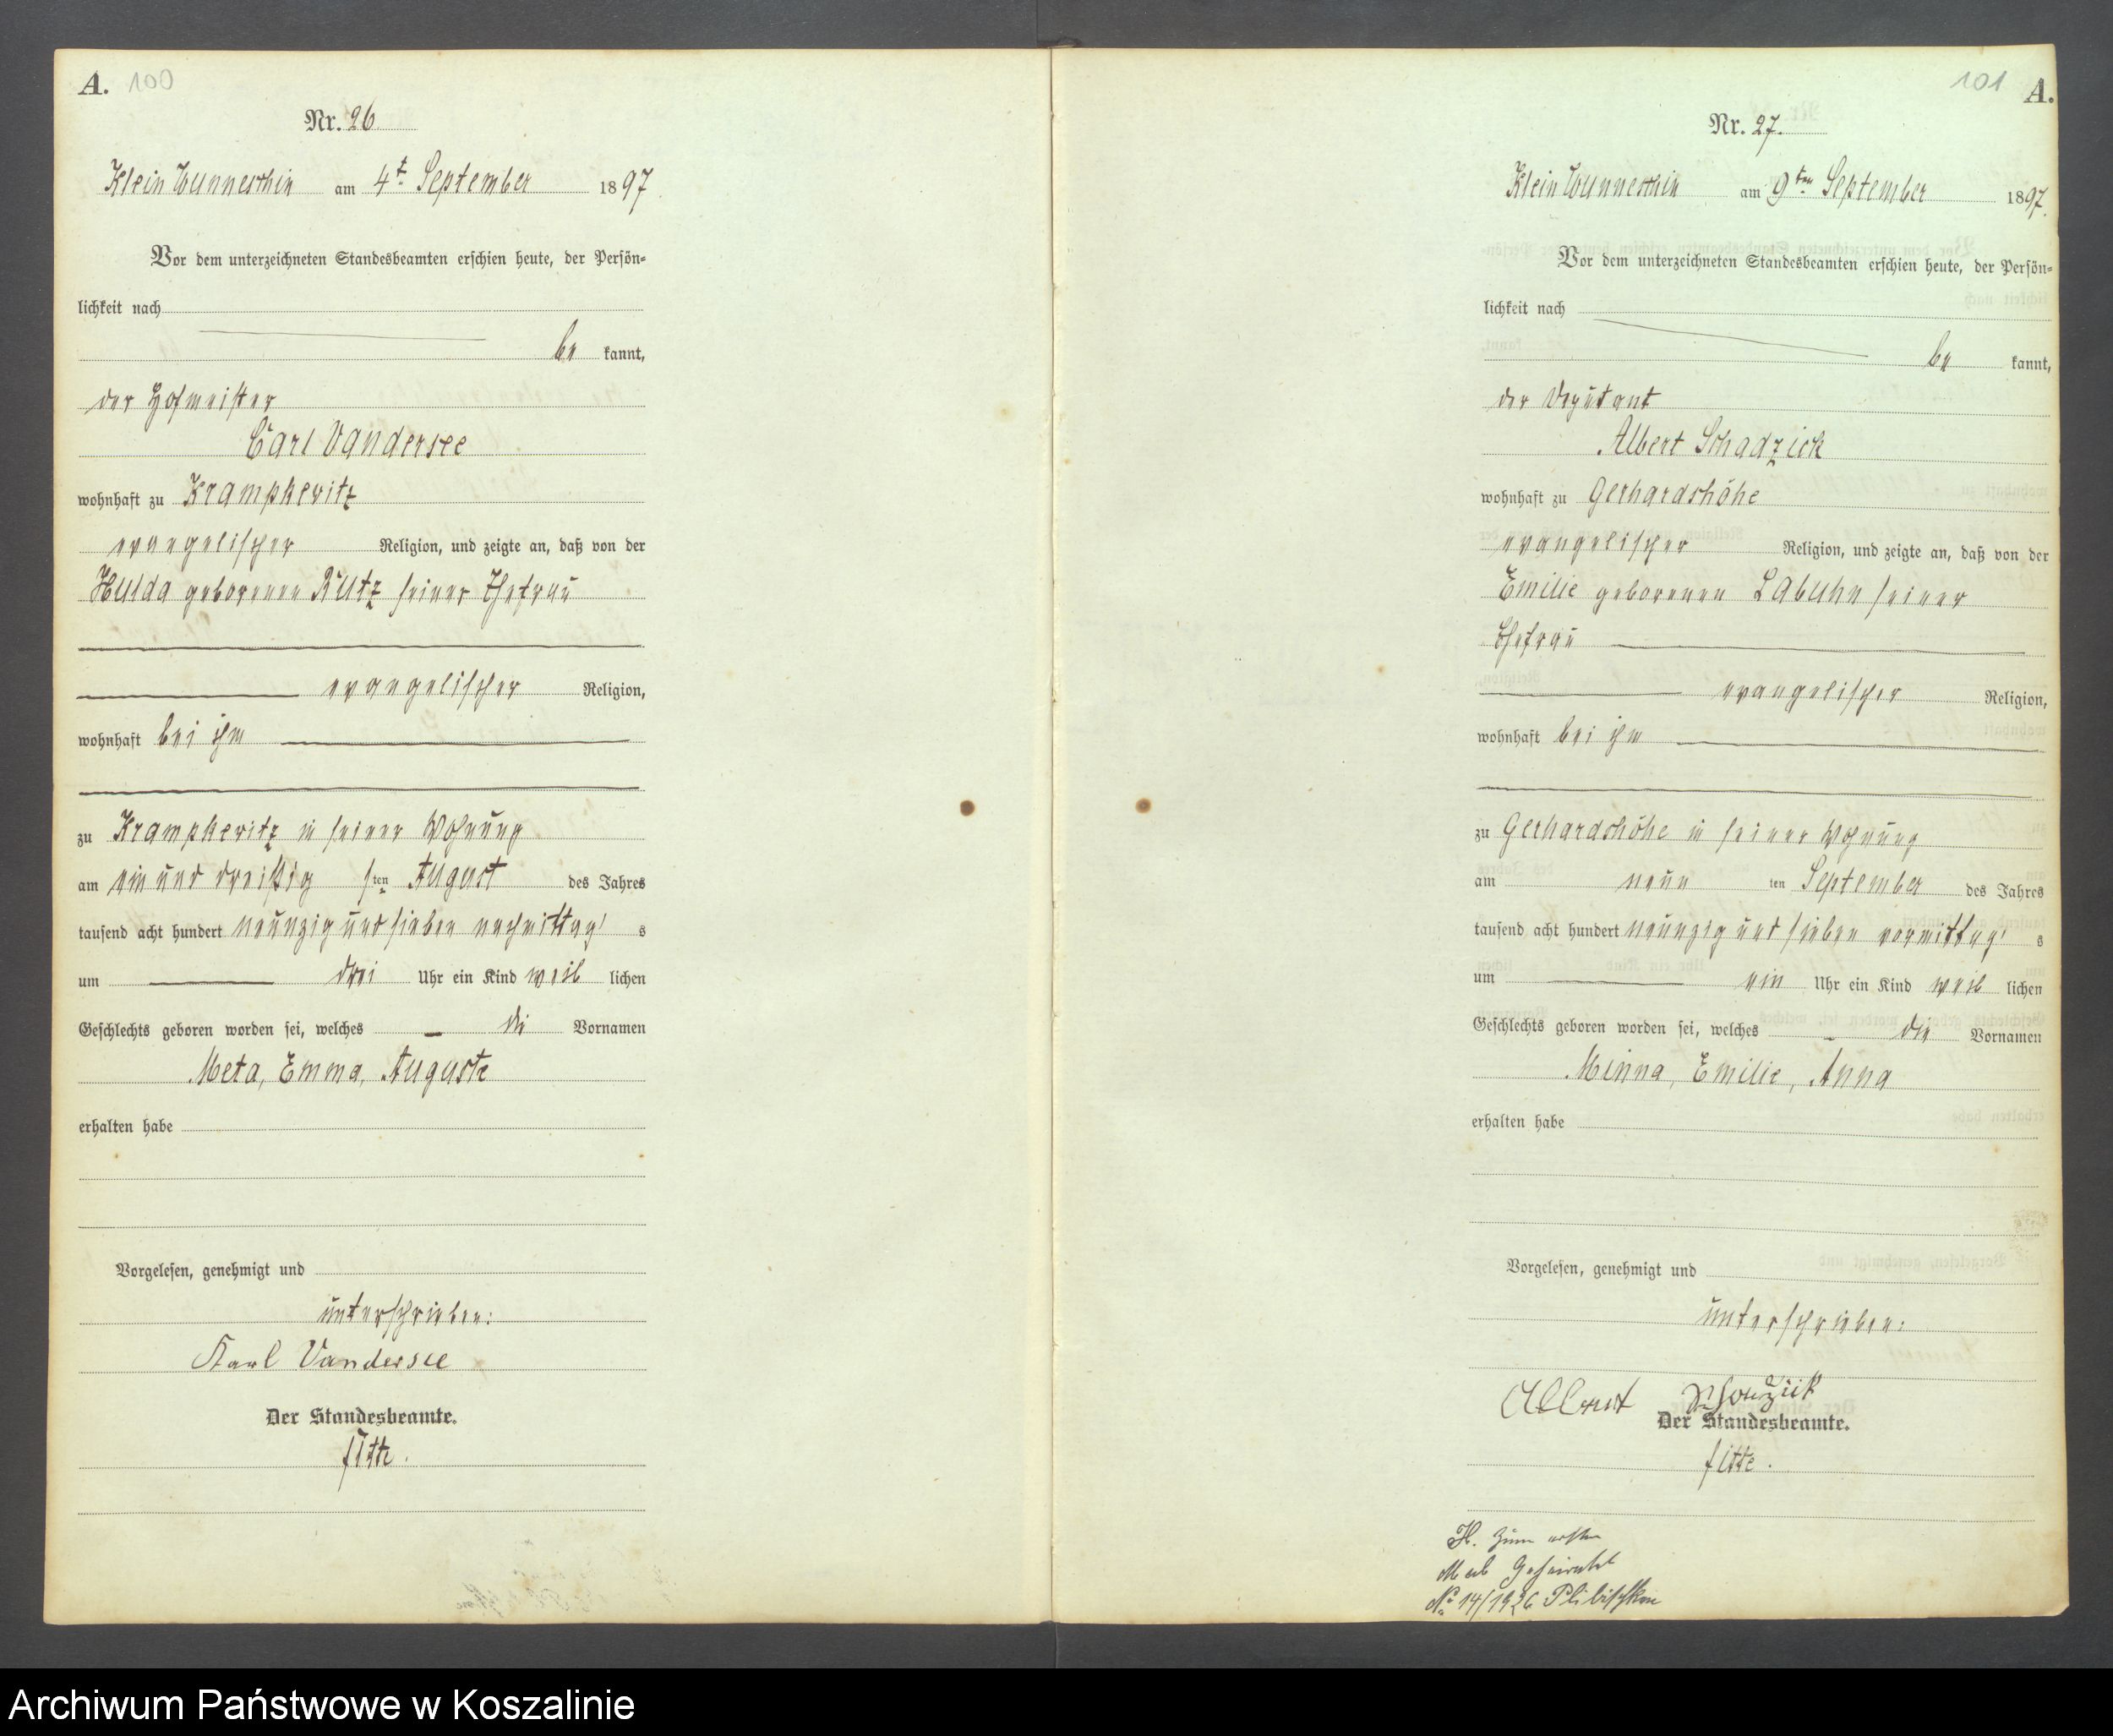 A. 100
Nr. 26
Klein Wunneschin am 4t. September 1897.
Vor dem unterzeichneten Standesbeamten erschien heute, der Persön-
lichkeit nach
be kannt,
der Hofmeister
Carl Vandersee
wohnhaft zu Krampkewitz
evangelischer Religion, und zeigte an, daß von der
Hulda geborenen Rutz seiner Ehefrau
evangelischer Religion,
wohnhaft bei ihm
zu Krampkewitz in seiner Wohnung
am ein und dreißig sten August des Jahres
tausend acht hundert neunzig und sieben nachmittag s
um drei Uhr ein Kind weib lichen
Geschlechts geboren worden sei, welches die Vornamen
Meta, Emma, Auguste
erhalten habe
Vorgelesen, genehmigt und
unterschrieben:
Karl Vandersee
Der Standesbeamte.
fitte.
101 A.
Nr. 27.
Klein Wunneschin am 9ten September 1897.
Vor dem unterzeichneten Standesbeamten erschien heute, der Persön-
lichkeit nach
be kannt,
der Deputant
Albert Schadzick
wohnhaft zu Gerhardshöhe
evangelischer Religion, und zeigte an, daß von der
Emilie geborenen Labuhn seiner
Ehefrau
evangelischer Religion,
wohnhaft bei ihm
zu Gerhardshöhe in seiner Wohnung
am neun ten September des Jahres
tausend acht hundert neunzig und sieben vormittag s
um ein Uhr ein Kind weib lichen
Geschlechts geboren worden sei, welches die Vornamen
Minna, Emilie, Anna
erhalten habe
Vorgelesen, genehmigt und
unterschrieben:
Albert
Der Standesbeamte.
fitte.
H. Zum ersten
Mal Geheiratet
No 14/1926 Plibischken
Archiwum Państwowe w Koszalinie